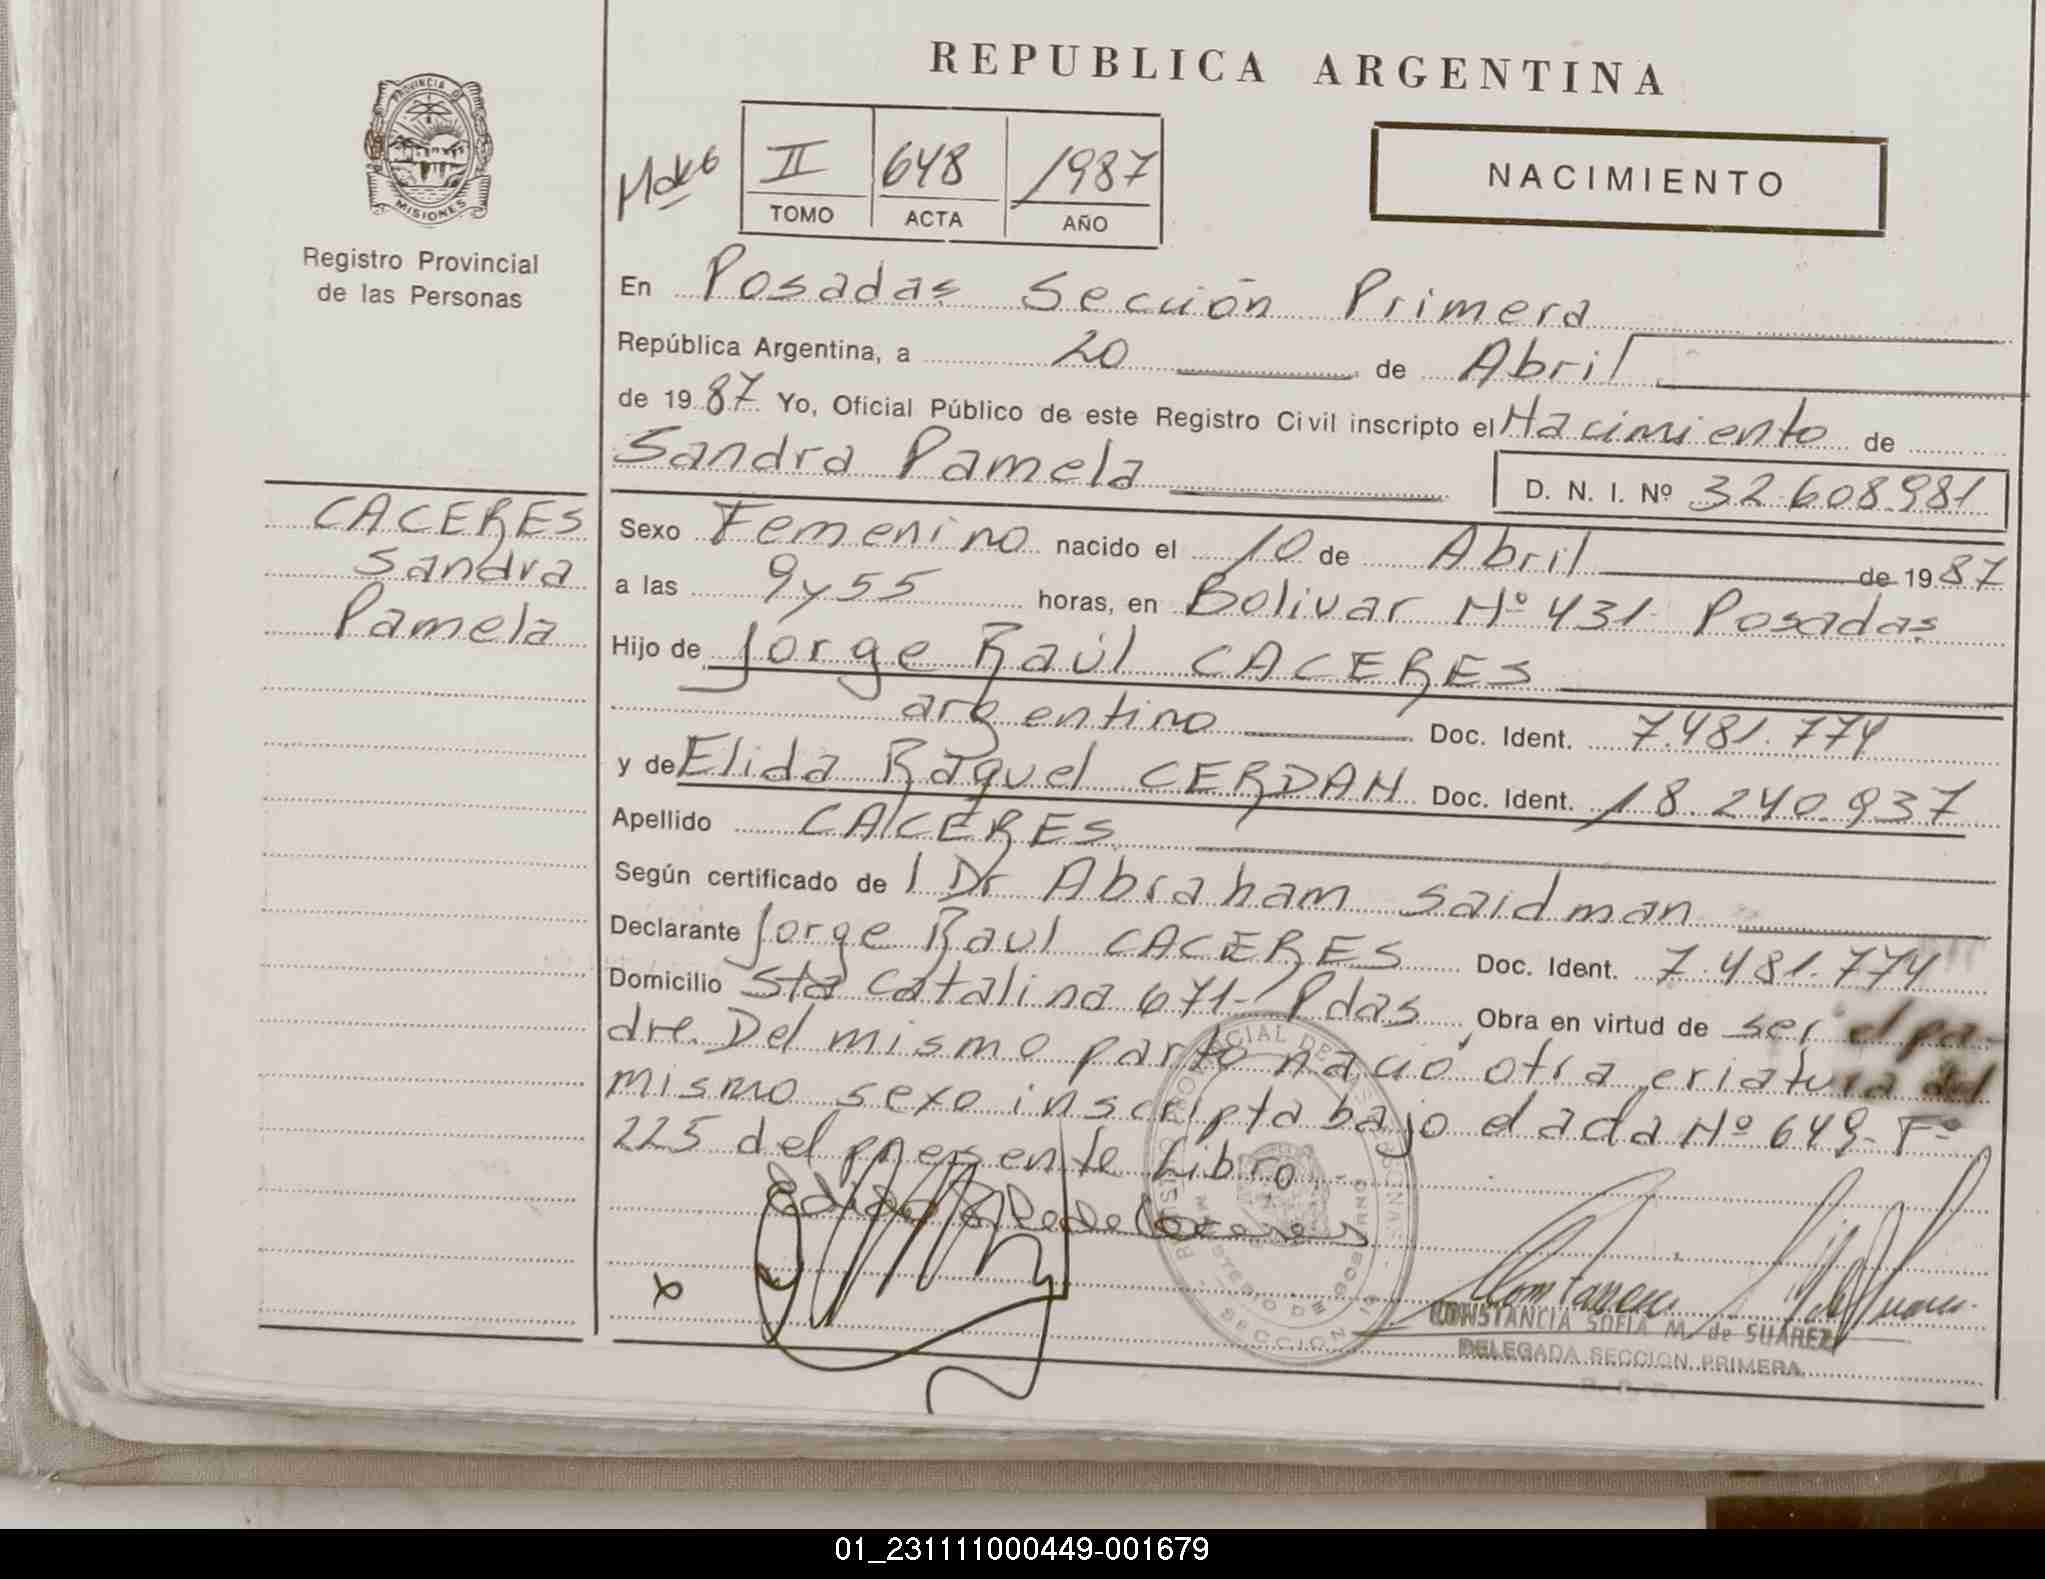 REPUBLICA ARGENTINA
PROVINCIA DE
MISIONES
Registro Provincial
de las Personas
II 648 1987
TOMO ACTA AÑO
NACIMIENTO
En Posadas Sección Primera
República Argentina, a 20 de Abril
de 1987 Yo, Oficial Público de este Registro Civil inscripto el Nacimiento de
Sandra Pamela D. N. I. Nº 32.608.981
CACERES
Sandra
Pamela
Sexo Femenino nacido el 10 de Abril de 1987
a las 9 y 55 horas, en Bolivar Nº 431- Posadas
Hijo de Jorge Raúl CACERES
argentino Doc. Ident. 7.481.774
y de Elida Raquel CERDAN Doc. Ident. 18.240.937
Apellido CACERES
Según certificado de l Dr Abraham Saidman
Declarante Jorge Raul CACERES Doc. Ident. 7.481.774
Domicilio Sta Catalina 671- Pdas Obra en virtud de ser el pa-
dre. Del mismo parto nació otra criatura del
mismo sexo inscripta bajo el acta Nº 649- Fº
225 del presente Libro.
CONSTANCIA SOFIA M. de SUAREZ
DELEGADA SECCION PRIMERA
01_231111000449-001679